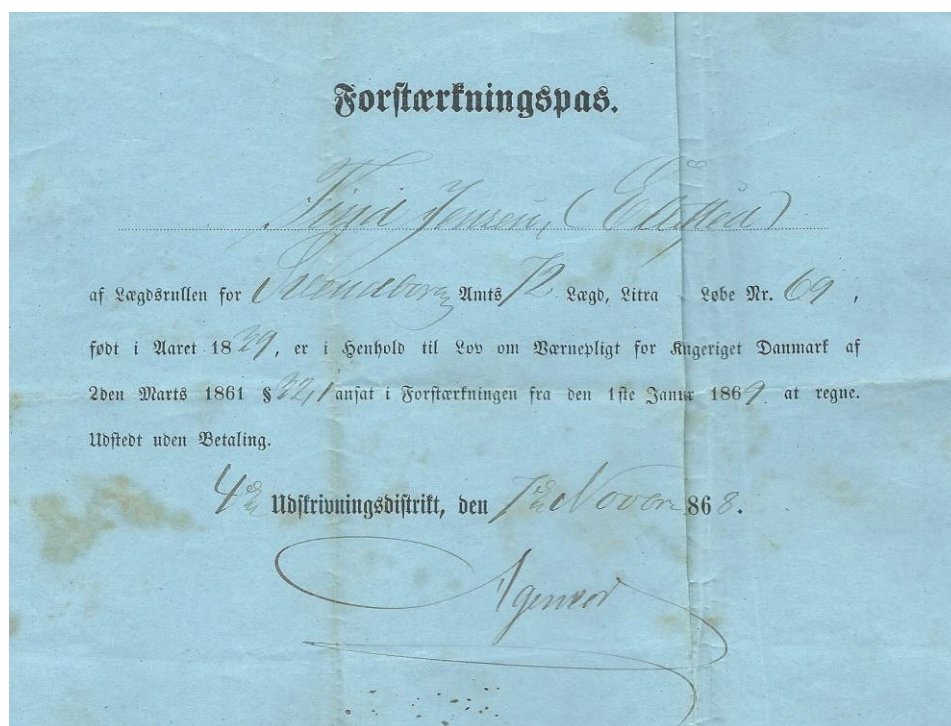 Forstærkningspas.
Jensen, (Ellested)
af Lægdsrullen for Svendborg Amts 72 Lægd, Litra Løbe Nr. 69,
født i Aaret 1839, er i Henhold til Lov om Værnepligt for Kngeriget Danmark af
2den Marts 1861 § 32,1 ansat i Forstærkningen fra den 1ste Janur 1869 at regne.
Udstedt uden Betaling.
4de Udskrivningsdistrikt, den 7de Novbr 1868.